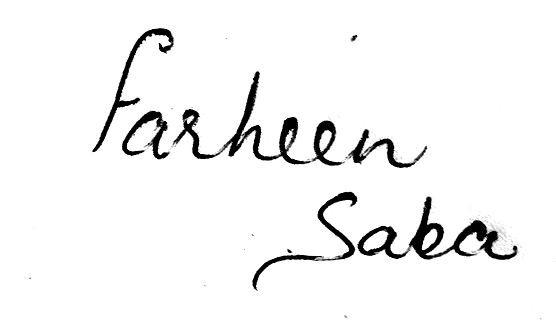 Farheen
Saba